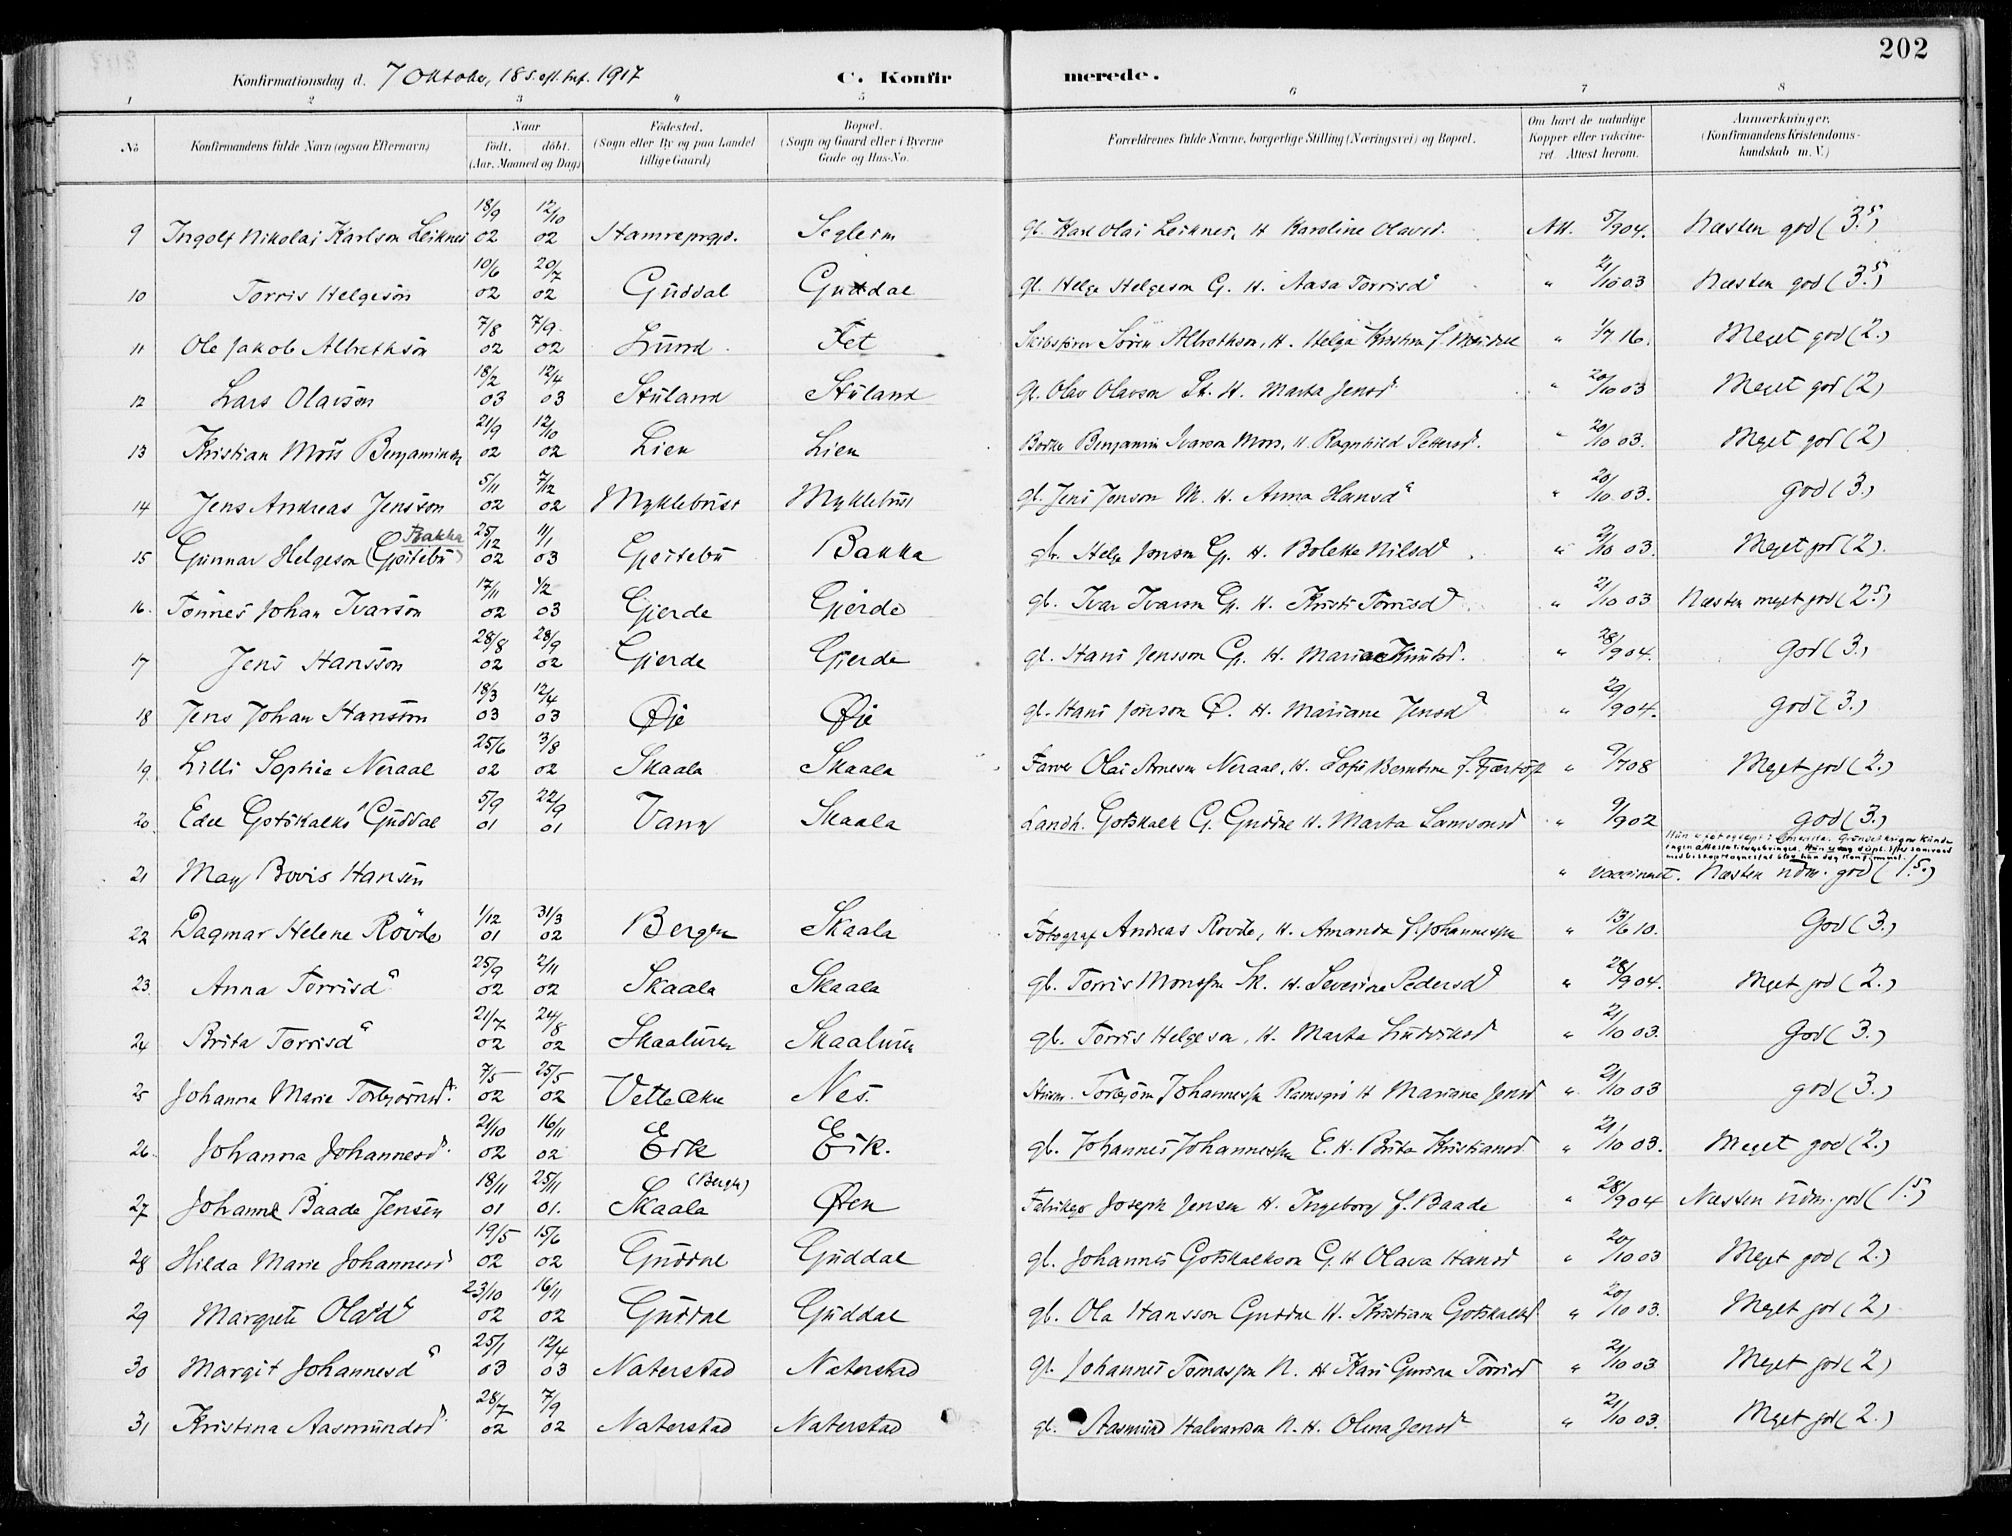 202
Konfirmationsdag d. 7 Oktober, 18 s. eft. tref. 1917 C. Konfirmerede.
1 2 3 4 5 6 7 8
No. Konfirmandens fulde Navn (ogsaa Efternavn) Naar født. døbt. (Aar, Maaned og Dag) Fødested. (Sogn eller By og paa Landet tillige Gaard) Bopæl. (Sogn og Gaard eller i Byerne Gade og Hus-No. Forældrenes fulde Navne, borgerlige Stilling (Næringsvei) og Bopæl. Om havt de naturlige Kopper eller vaccineret. Attest herom. Anmærkninger. (Konfirmandens Kristendomskundskab m. V.)
9 Ingolf Nikolai Karlson Leiknes 18/9 02 12/10 02 Hamreprgj. Segleim gb. Karl Olai Leiknes, H. Karoline Olavsd. Att. 5/9 04. Næsten god (3.5)
10 Torris Helgeson 10/6 02 20/7 02 Guddal Guddal gb. Helge Helgeson G. H. Aasa Torrisd " 21/10 03 Næsten god (3.5)
11 Ole Jakob Albrethson 7/8 02 7/9 02 Lund Fet Skibsfører Sören Albrethson, H. Helga f. " 1/7 16. Meget god (2.)
12 Lars Olavson 18/2 03 12/4 03 Stuland Stuland gb. Olav Olavson St. H. Marta Jensd. " 20/10 03 Meget god (2)
13 Kristian Moss Benjaminsen 21/9 02 12/10 02 Lien Lien Benjamin Ivarson Moss, H. Ragnhild Pettersd. " 20/10 03. Meget god (2)
14 Jens Andreas Jensson 5/11 02 7/12 02 Myklebust Myklebust gb. Jens Jenson M. H. Anna Hansd " 20/10 03. god (3.)
15 Gunnar Helgeson (Gjøitebu) Bakka 25/12 02 11/1 03 Gjøitebu Bakka gbr. Helge Jonson Gj. H. Bolette Nilsd " 21/10 03. Meget god (2).
16. Tönnes Johan Ivarson 17/11 02 1/2 03 Gjerde Gjerde gb. Ivar Ivarson Gj. H. Kristi Torrisd " 21/10 03 Næsten meget god (2.5)
17 Jens Hansson 28/8 02 28/9 02 Gjerde Gjerde gb. Hans Jensson Gj. H. Mariane Knutsd. " 28/9 04. God (3.)
18 Jens Johan Hansson 18/3 03 12/4 03 Øie Øie gb. Hans Jonson Ø. H. Mariane Jensd " 29/9 04. God (3.)
19 Lilli Sophie Neraal 25/6 02 3/8 02 Skaala Skaala Farver Olai Arneson Neraal, H. Sofie Berntine f. Fjærtoft " 9/7 08 Meget god (2.)
20 Edel Gotskalks Guddal 5/9 01 22/9 01 Vang Skaala Landh. Gotskalk G. Guddal H. Marta Samsonsd " 9/9 02 god (3.)
21 May Bovis Hansen " vaccineret. Næsten udm. god (1.5.)
22 Dagmar Helene Rövde 1/12 01 31/3 02 Bergen Skaala Fotograf Andreas Rovde, H. Amanda f. Johannessen " 13/6 10. God (3.)
23. Anna Torrisd 25/9 02 2/11 02 Skaala Skaala gb. Torris Monssen Sk. H. Severine Pedersd " 28/9 04. Meget god (2.)
24 Brita Torrisd 21/7 02 24/8 02 Skaaluren Skaaluren gb. Torris Helgeson, H. Marta Ludviksd " 21/10 03. God (3.)
25 Johanna Marie Torbjörnsd. 7/5 02 25/5 02 Vetleøen Nes. Torbjörn Johannessen H. Mariane Jensd " 21/10 03 god (3.)
26. Johanna Johannesd. 21/10 02 16/11 02 Eik Eik. gb. Johannes Johannessen E. H. Brita Kristiansd. " 21/10 03. Meget god (2.)
27 Johanne Baade Jensen 18/11 01 25/11 01. Skaala (Bergen) Øren Fabrikeier Joseph Jensen H. Ingeborg f. Baade " 28/9 04 Næsten udm. god (1.5)
28 Hilda Marie Johannesd 19/5 02 15/6 02 Guddal Guddal gb. Johannes Gotskalkson G. H. Olava Hansd " 20/10 03 Meget god (2.)
29 Margrete Olasd 23/10 02 16/11 02 Guddal Guddal gb. Ola Hansson Guddal H. Kristiane Gotskalksd " 20/10 03. Meget god (2)
30 Margit Johannesd 25/1 03 12/4 03 Naterstad Naterstad gb. Johannes Tomassen N. H. Kari Gurina Torrisd " 21/10 03 Meget god (2)
31 Kristina Aasmundsd. 28/7 02 7/9 02 Naterstad Naterstad gb. Aasmund Halvardson N. H. Olina Jensd " 21/10 03. Meget god (2.)